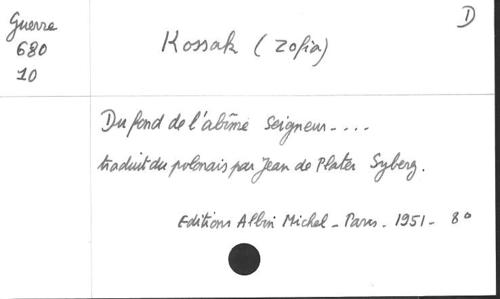 Guerre
680
10
D
Kossak (Zofia)
Du fond de l'abîme Seigneur....
traduit du polonais par Jean de Plater Syberg.
Editions Albin Michel - Paris - 1951 - 8°